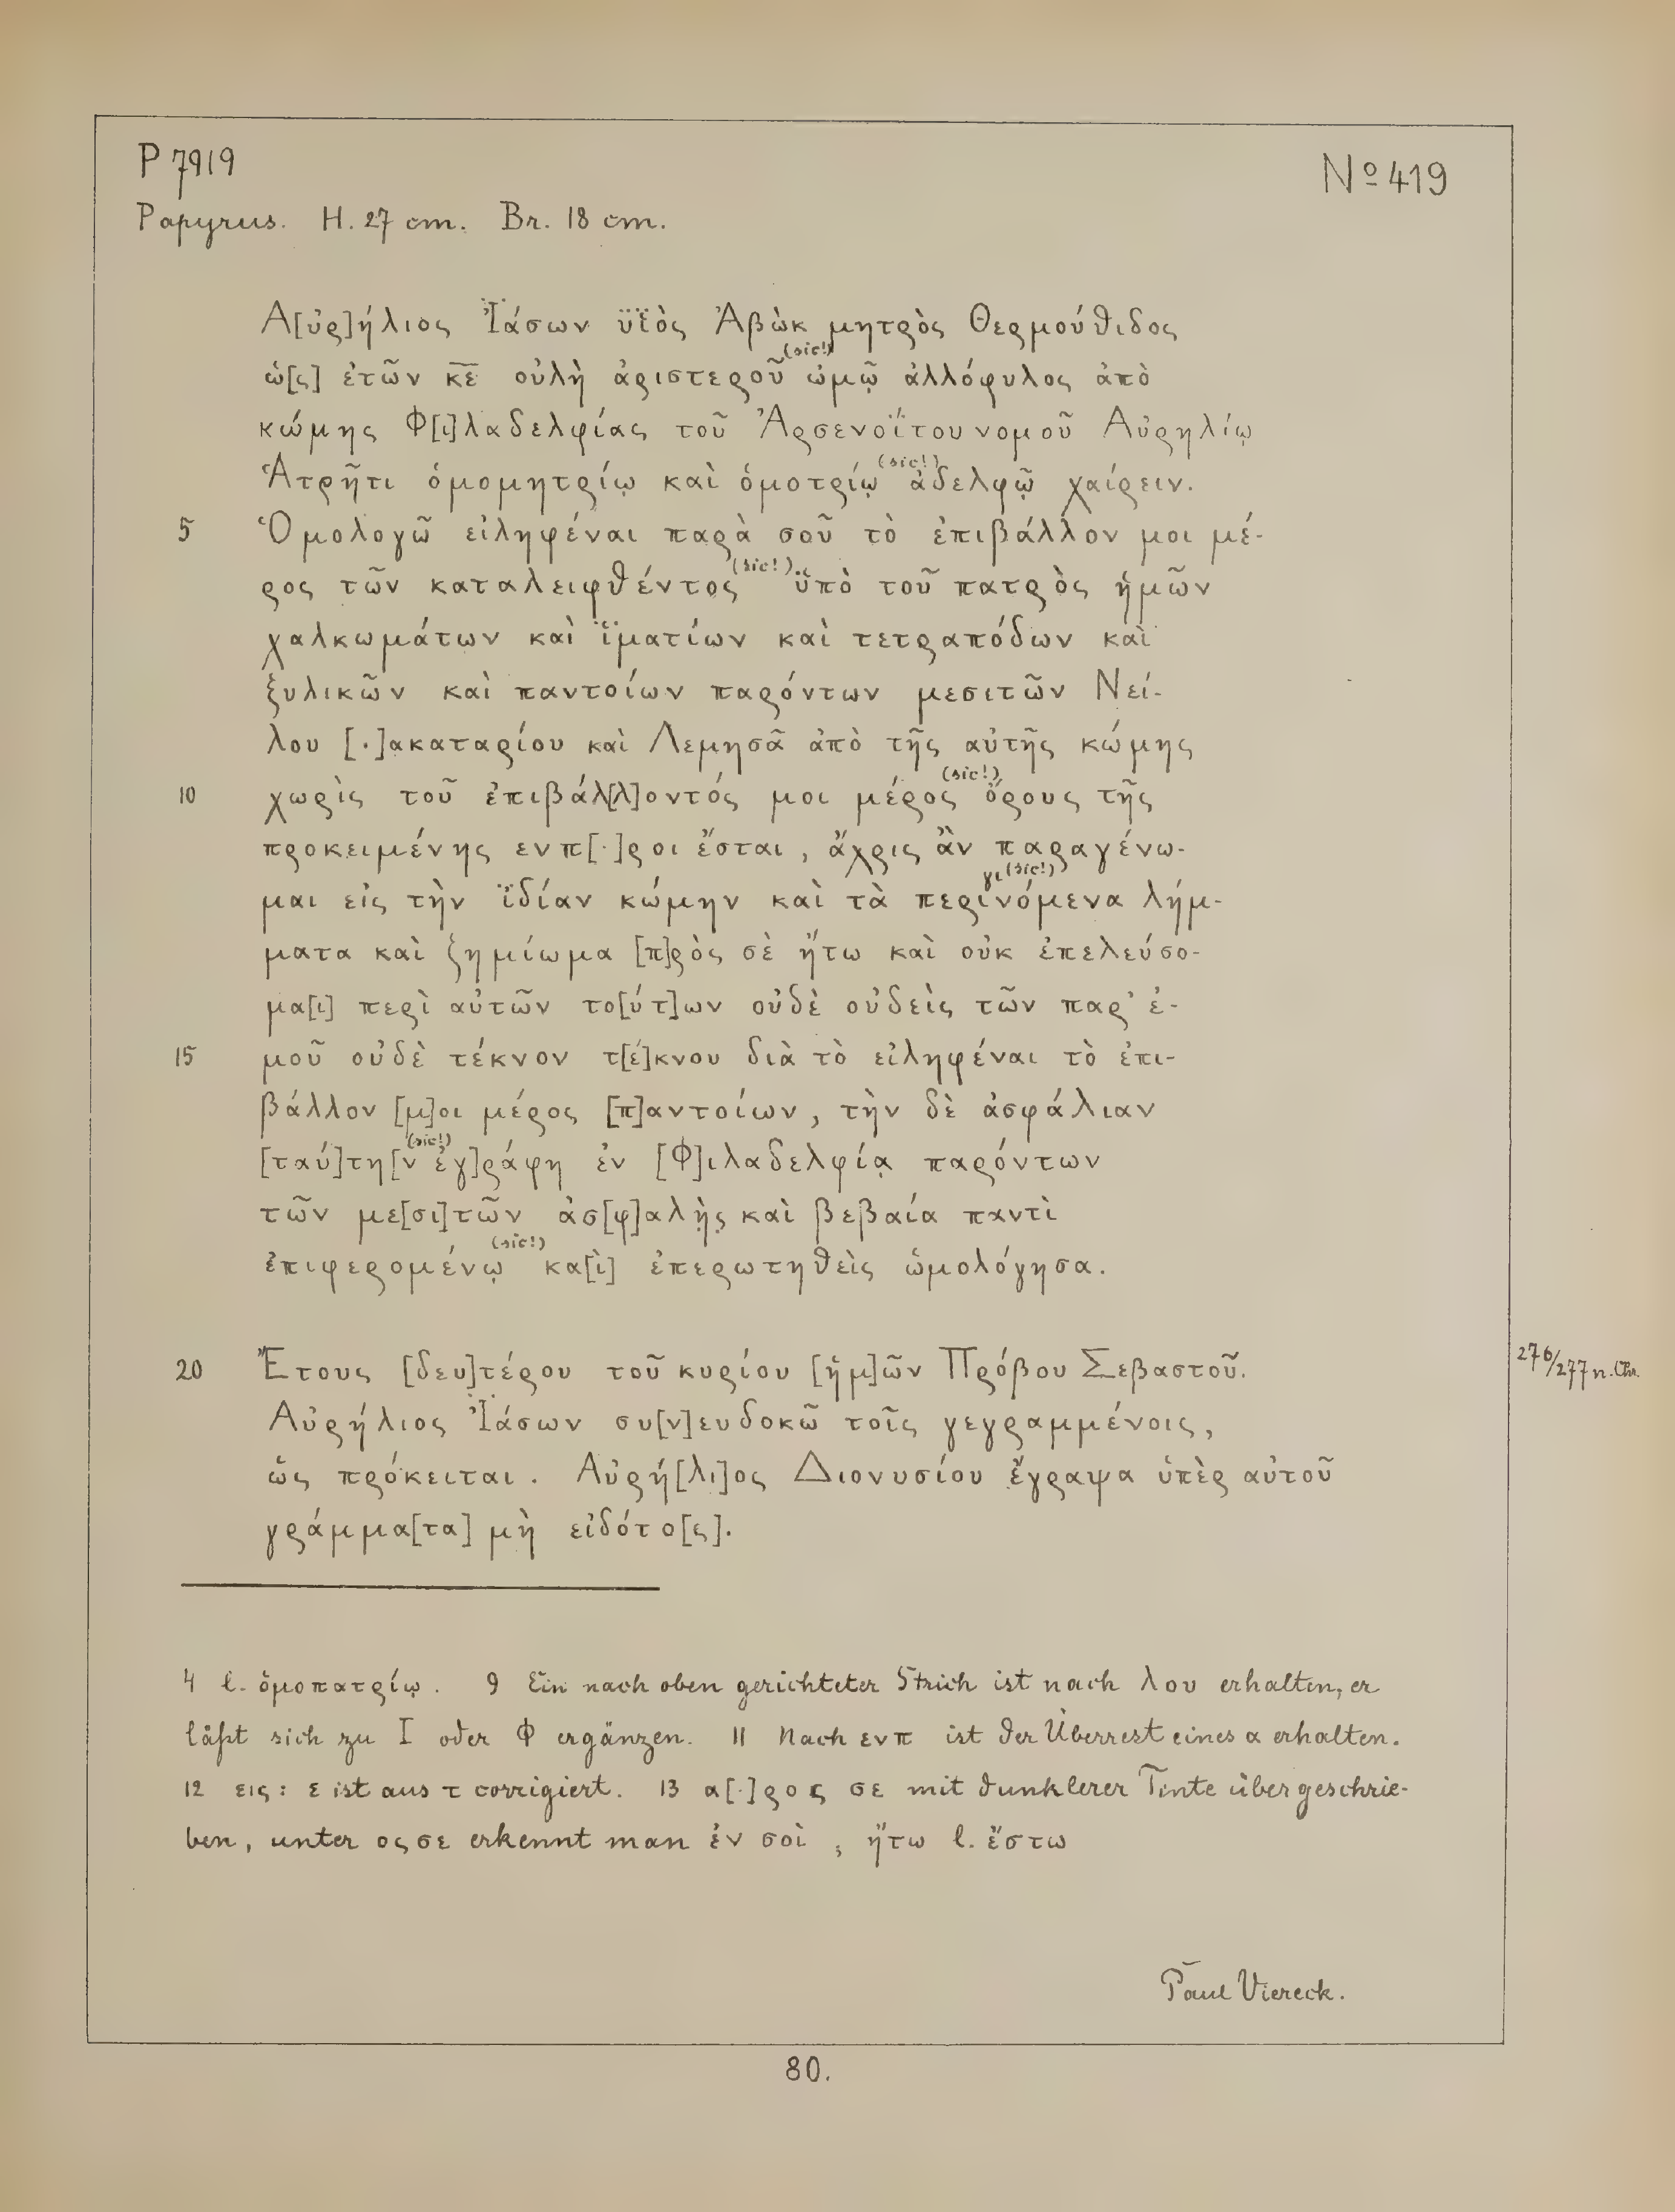 P 7919
Nº 419
Papyrus. H. 27 cm. Br. 18 cm.
Α[ὐρ]ήλιος Ἰ̈άσων ϋἱὸς Ἀβὼκ μητρὸς Θερμούθιδος
(sic!)
ὡ[ς] ἐτῶν κ̅ε̅ οὐλὴ ἀριστεροῦ ὠμῷ ἀλλόφυλος ἀπὸ
κώμης Φ[ι]λαδελφίας τοῦ Ἀρσενοΐτου νομοῦ Αὐρηλίῳ
(sic!)
Ἁτρῆτι ὁμομητρίῳ καὶ ὁμοτρίῳ ἀδελφῷ χαίρειν.
5 Ὁμολογῶ εἰληφέναι παρὰ σοῦ τὸ ἐπιβάλλον μοι μέ-
(sic!)
ρος τῶν καταλειφθέντος ὑ̈πὸ τοῦ πατρὸς ἡμῶν
χαλκωμάτων καὶ ἱ̈ματίων καὶ τετραπόδων καὶ
ξυλικῶν καὶ παντοίων παρόντων μεσιτῶν Νεί-
λου [·]ακαταρίου καὶ Λεμησᾶ ἀπὸ τῆς αὐτῆς κώμης
(sic!)
10 χωρὶς τοῦ ἐπιβάλ[λ]οντός μοι μέρος ὄρους τῆς
προκειμένης ενπ[·]ροι ἔσται, ἄχρις ἂν παραγένω-
γι(sic!)
μαι εἰς τὴν ἰ̈δίαν κώμην καὶ τὰ περινόμενα λήμ-
ματα καὶ ζημίωμα [π]ρὸς σὲ ἤτω καὶ οὐκ ἐπελεύσο-
μα[ι] περὶ αὐτῶν το[ύτ]ων οὐδὲ οὐδεὶς τῶν παρ' ἐ-
15 μοῦ οὐδὲ τέκνον τ[έ]κνου διὰ τὸ εἰληφέναι τὸ ἐπι-
βάλλον [μ]οι μέρος [π]αντοίων, τὴν δὲ ἀσφάλιαν
(sic!)
[ταύ]τη[ν ἐγ]ράφη ἐν [Φ]ιλαδελφίᾳ παρόντων
τῶν με[σι]τῶν ἀσ[φ]αλὴ̣ς̣ καὶ βεβαία παντὶ
(sic!)
ἐπιφερομένῳ κα[ὶ] ἐπερωτηθεὶς ὡμολόγησα.
20 Ἔτους [δευ]τέρου τοῦ κυρίου [ἡμ]ῶν Πρόβου Σεβαστοῦ.
276/277 n. Chr.
Αὐρήλιος Ἰ̈άσων συ[ν]ευδοκῶ τοῖς γεγραμμένοις,
ὡς πρόκειται. Αὐρή[λι]ος Διονυσίου ἔγραψα ὑπὲρ αὐτοῦ
γράμμα[τα] μὴ εἰδότο[ς].
4 l. ὁμοπατρίῳ. 9 Ein nach oben gerichteter Strich ist nach λου erhalten, er
läßt sich zu Ι oder Φ ergänzen. 11 Nach ενπ ist der Überrest eines α erhalten.
12 εις: ε ist aus τ corrigiert. 13 α[·]ρος σε mit dunklerer Tinte übergeschrie-
ben, unter οςσε erkennt man ἐν σοὶ ; ἤτω l. ἔστω
Paul Viereck.
80.